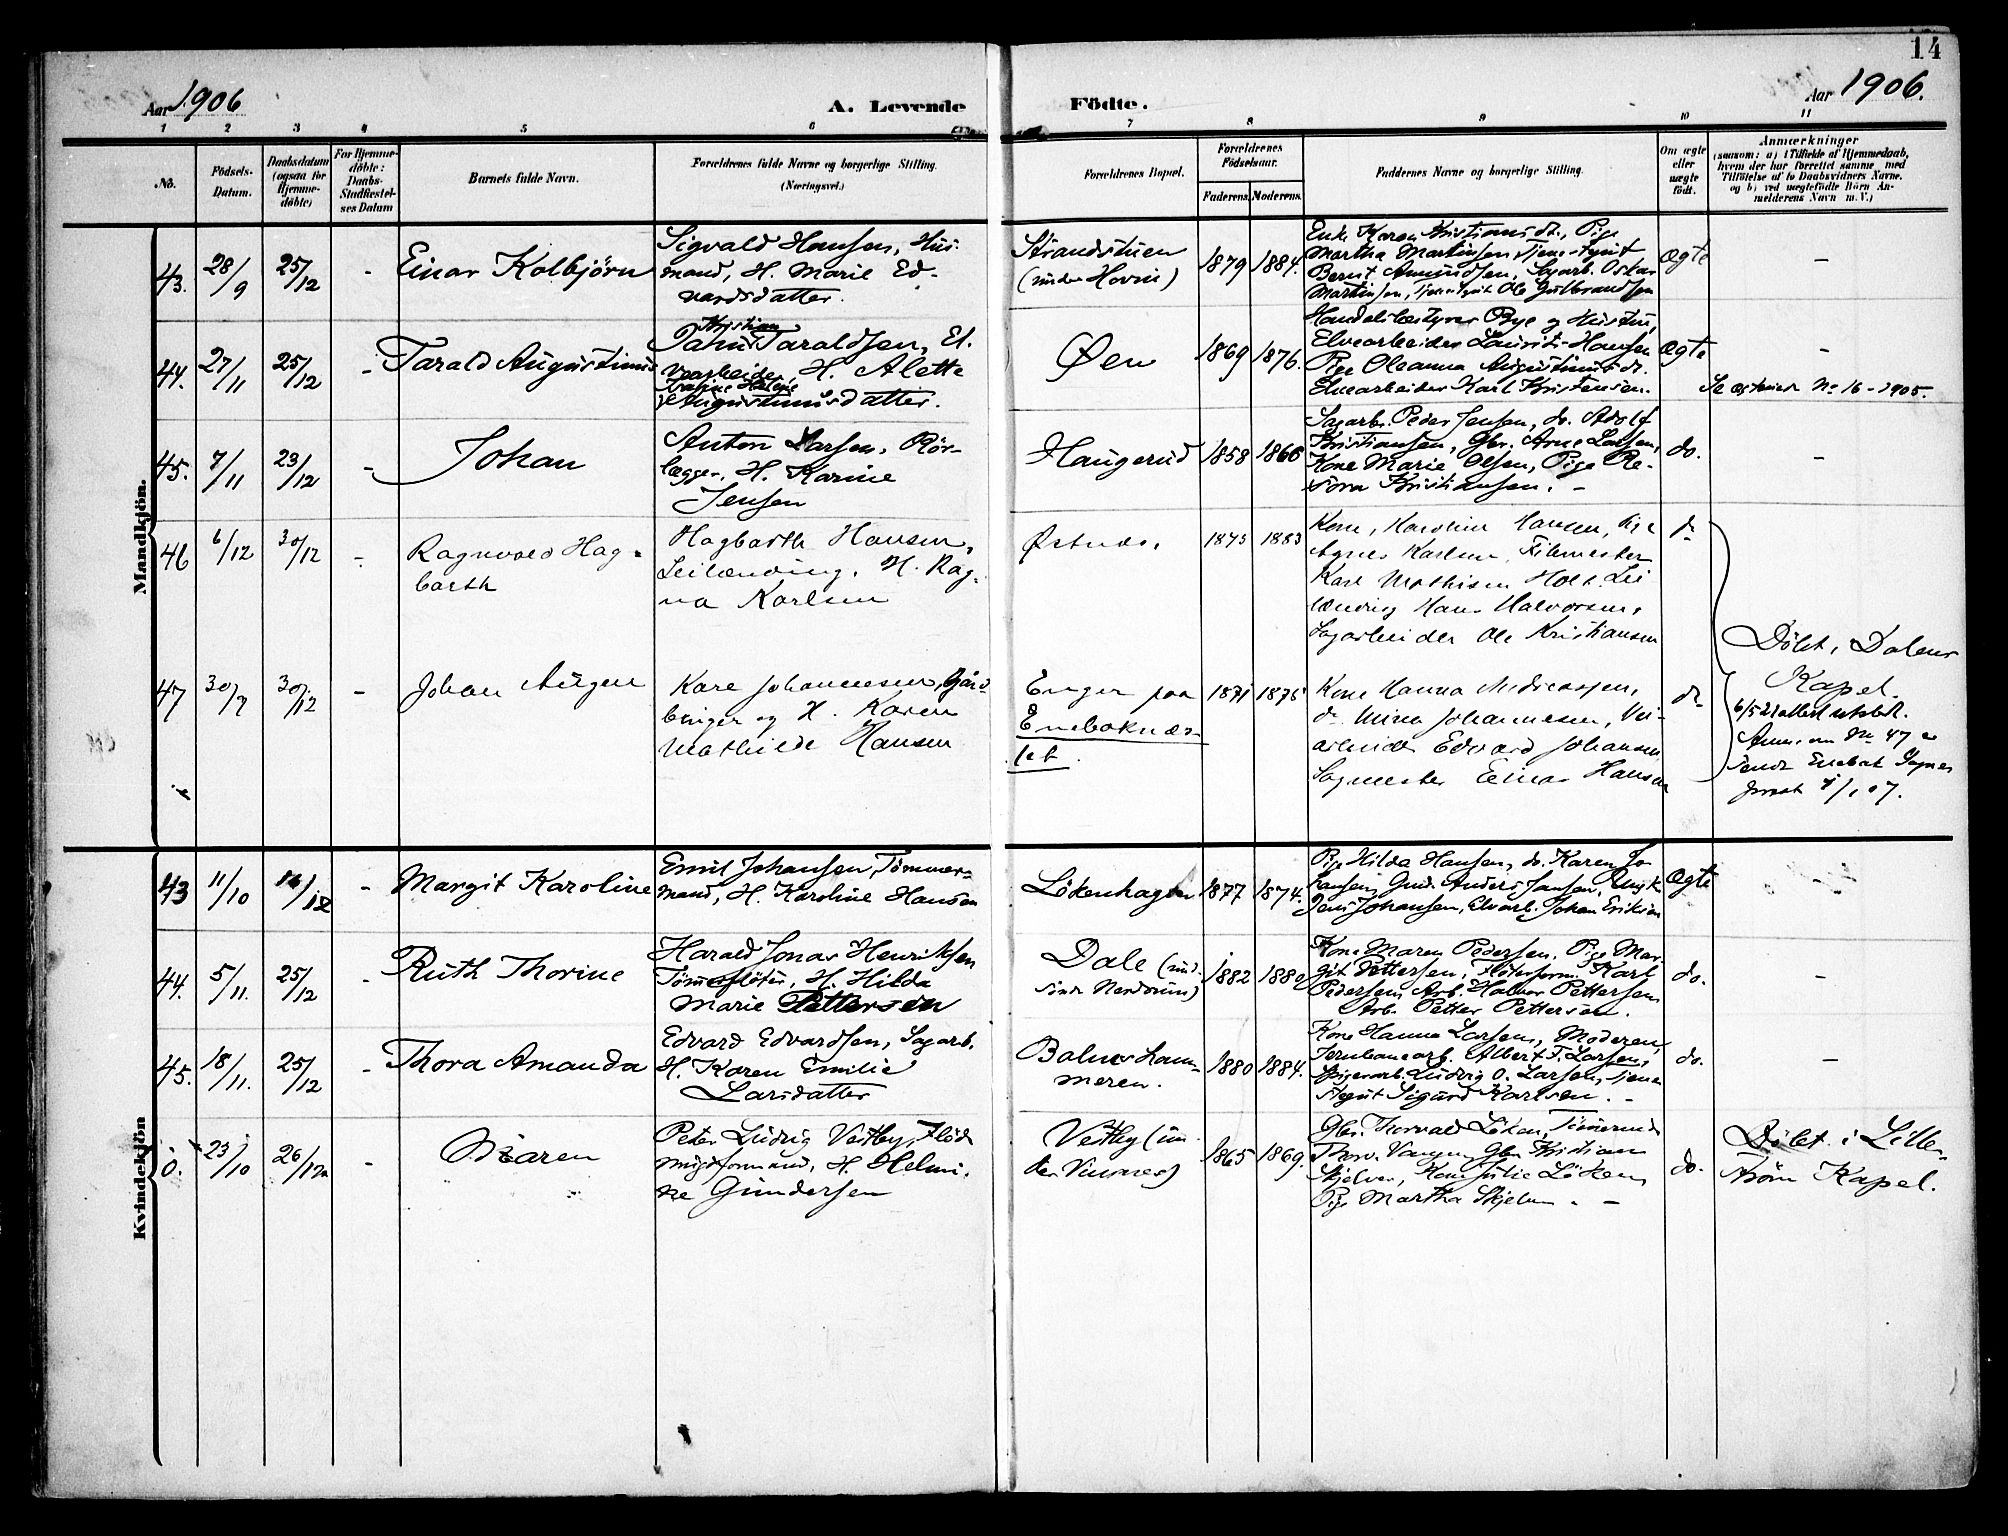 14
Aar 1906
A. Levende
Födte.
Aar 1906.
1 2 3 4 5 6 7 8 9 10 11
No.
Födsels-
Datum.
Daabsdatum
(ogsaa for
Hjemme-
döbte)
For Hjemme-
döbte:
Daabs-
Stadfæstel-
ses Datum
Barnets fulde Navn.
Forældrenes fulde Navne og borgerlige Stilling.
(Næringsvei.)
Forældrenes Bopæl.
Forældrenes
Födselsaar.
Faderens. Moderens.
Faddernes Navne og borgerlige Stilling.
Om ægte
eller
uægte
födt.
Anmærkninger
(saasom: a) i Tilfælde af Hjemmedaab,
hvem der har forrettet samme med
Tilföielse af to Daabsvidners Navne.
og b) ved uægtefödte Börn An-
melderens Navn m. V.)
Mandkjön.
43. 28/9 25/12 - Einar Kolbjörn
Sigvald Hansen, Hus
mand, H. Marie Ed-
vardsdatter.
Strandstuen
(under Hovin)
1879 1884.
Enke Karen Kristiansdt., Pige
Martha Martinsen, Tjenestgut
Bernt Amundsen, Sagarb. Oskar
Martinsen, Tjenestgut Ole Gulbrandsen
Ægte
-
44. 27/11 25/12 - Tarald Augustinus
Kristian
Taraldsen, El.
vearbeider, H. Alette
Augustinusdatter.
Øen
1869 1876.
Handelsbestyrer Bye og Hustru,
Elvearbeider Laurits Hansen
Pige Oleanna Augustinusdt.
Elvearbeider Karl Kristensen.
Ægte
-
No 16 - 1905.
45. 7/11 23/12 - Johan
Anton Larsen, Rör-
lægger, H. Karine
Jensen
Haugerud
1858 1866
Sagarb. Peder Jensen, do. Adolf
Kristiansen, Gbr. Arne Larsen,
Kone Marie Olsen, Pige Pe-
tora Kristiansen. -
do.
-
46 6/12 30/12 - Ragnvald Hag-
barth
Hagbarth Hansen,
Leilænding, H. Rag-
na Karlsen
Østnæs.
1873 1883
Kone, Karoline Hansen, Pige
Agnes Karlsen, Filemester
Karl Mathisen Holt, Lei
lænding Hans Halvorsen,
Sagarbeider Ole Kristiansen
Döbt i Dalens
Kapel.
47 30/9 30/12 - Johan Birger
Kare Johannesen, Gård-
bruger og H. Karen
Mathilde Hansen
Enger paa
Eneboknæs-
let.
1871 1875
Kone Hanna Andreassen,
do. Mina Johannesen, Vei-
arbeider Edvard Johansen
Sagmester Einar Hansen
6/5 21 attest utstedt.
Anm. om No 47 er
sendt Enebak Sogne
prest 4/1 07.
Kvindekjön
43 11/10 16/12 - Margit Karoline
Emil Johansen, Tömmer-
mand, H. Karoline Hansen
Lökenhagen
1877 1874.
Pige Hilda Hansen, do. Karen Jo
hansen, Gmd. Anders Jansen, Ungk.
Jens Johansen, Elvarb. Johan Eriksen
Ægte
44. 5/11. 25/12 - Ruth Thorine
Harald Jonas Henriksen
Tömmerflöter, H. Hilda
Marie Pettersen
Dale (
Nordrum)
1882 1882
Kone Maren Pedersen, Pige Mar-
git Pettersen, Flöterform. Karl
Pedersen, Arb. Halvor Pettersen,
Arb. Petter Pettersen.
do.
-
45. 18/11. 25/12 - Thora Amanda
Edvard Edvardsen, Sagarb.
H. Karen Emilie
Larsdatter
Bolnerham-
meren.
1880 1884.
Kone Hanna Larsen, Moderen,
Jernbanearb. Albert T. Larsen,
Spigerarb. Ludvig O. Larsen, Tjene
stegut Sigurd Karlsen. -
do.
-
0. 23/10 26/12 - Maren
Peter Ludvig Vestby, Flöd
ningsformand, H. Helmi-
ne Gundersen
Vestby (un-
der Vinsnes)
1865 1869.
Gbr. Thorvald Löken, Tömmermd.
Thorv. Vangen, Gbr. Kristian
Skjelver, Kone Julie Löken
Pige Martha Skjelver. -
do.
Döbt i Lille-
ström Kapel.